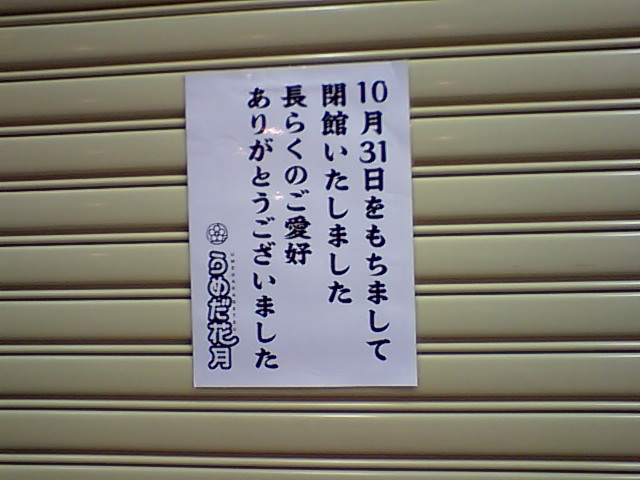 10月31日をもちまして
閉館いたしました
長らくのご愛好
ありがとうございました
うめだ花月